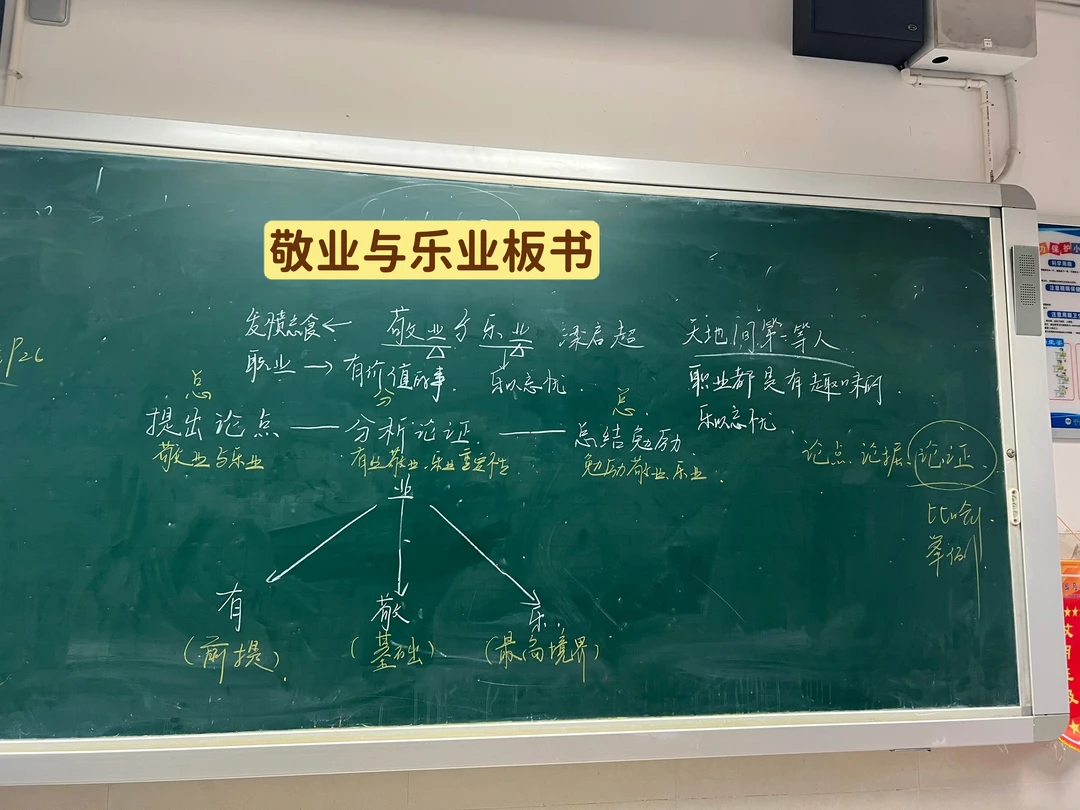 敬业与乐业板书
发愤忘食← 敬业与乐业 梁启超 天地间第一等人
P26
职业→有价值的事. 乐以忘忧 职业都是有趣味的
总 分 总.
乐以忘忧.
提出论点——分析论证.——总结勉励
敬业与乐业 有业敬业.乐业重要性. 勉励敬业、乐业.
论点 论据 论证.
业
比喻.
举例
有 敬 乐.
(前提). (基础) (最高境界)
科学用眼